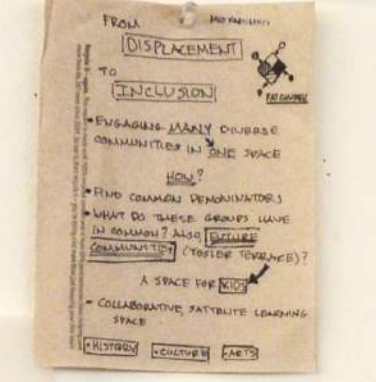 FROM
DISPLACEMENT
TO
INCLUSION
PATCHWORK
• ENGAGING MANY DIVERSE
COMMUNITIES IN ONE SPACE
HOW?
• FIND COMMON DENOMINATORS
• WHAT DO THESE GROUPS HAVE
IN COMMON? ALSO, FUTURE
COMMUNITIES (YESLER TERRACE)?
A SPACE FOR KIDS
- COLLABORATIVE, SATTELITE LEARNING
SPACE
• HISTORY • CULTURE • ARTS